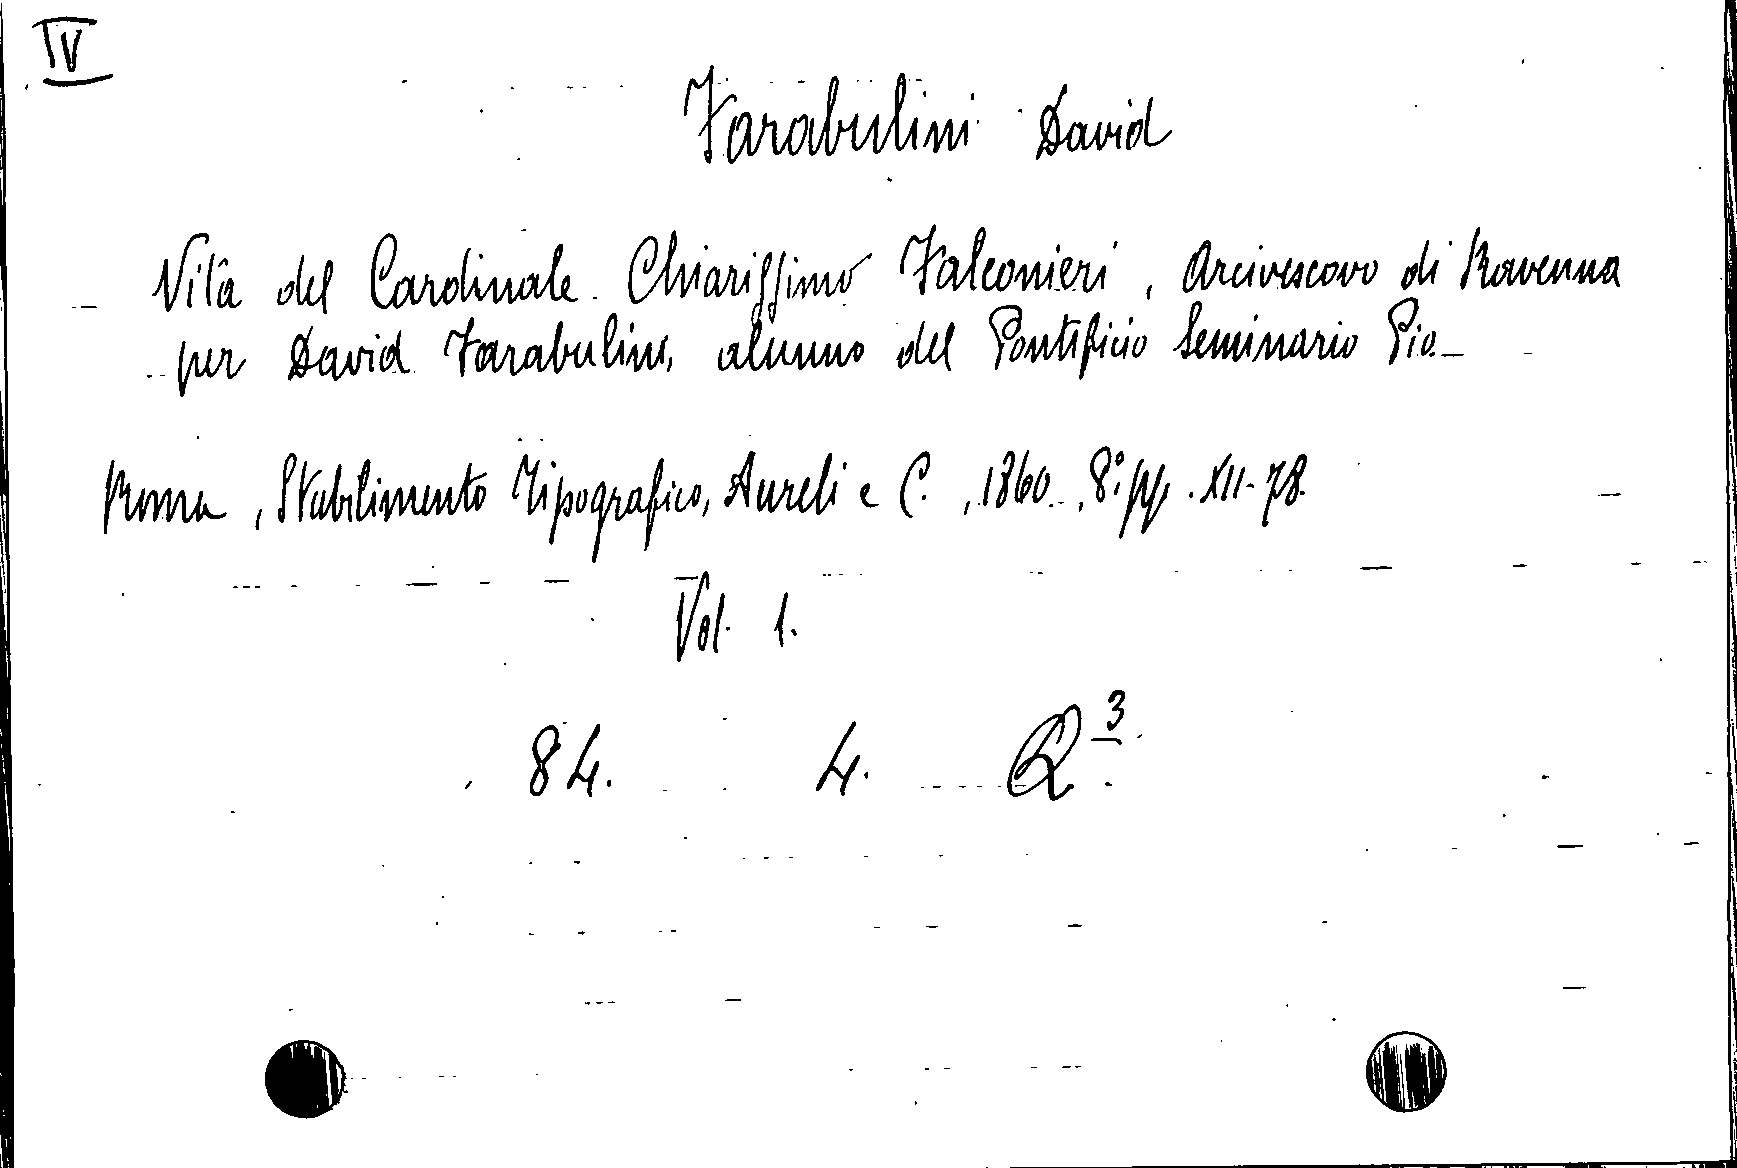 IV
Farabulini David
Vita del Cardinale Chiarissimo Falconieri, Arcivescovo di Ravenna
per David Farabulini, alunno del Pontificio Seminario Pio.
Roma, Stabilimento Tipografico, Aureli e C., 1860, 8° pp. XII-78.
Vol. 1.
84. 4. Q 3.